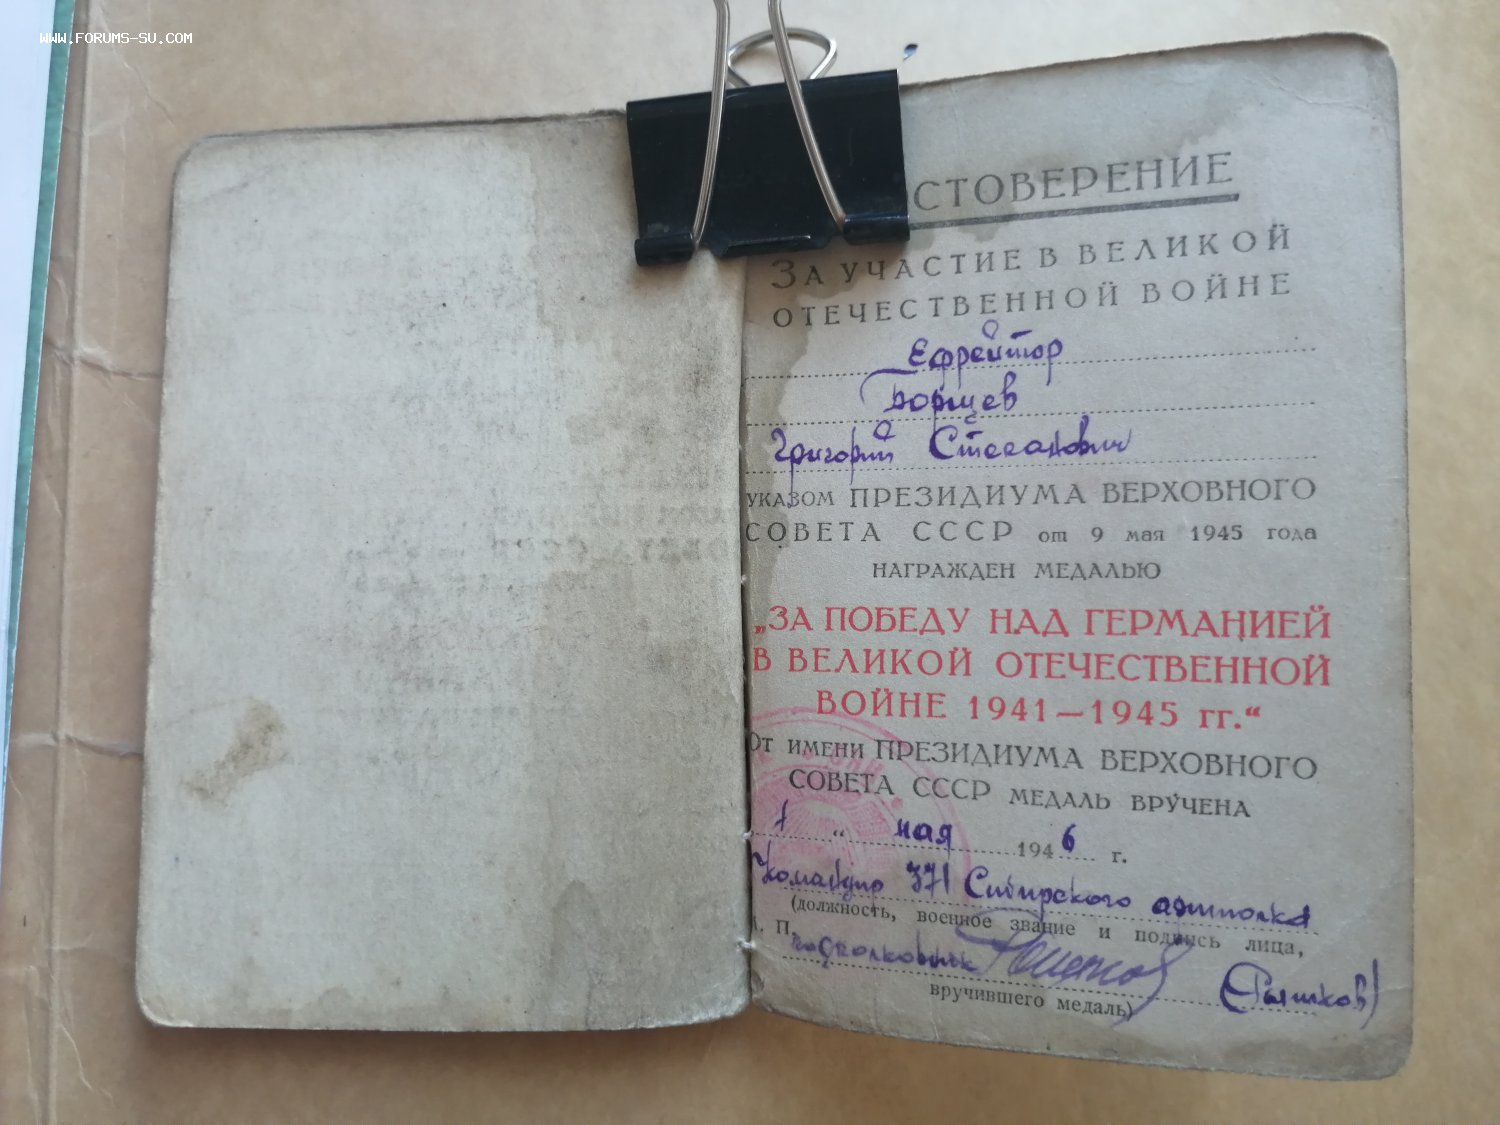 WWW.FORUMS-SU.COM
СТОВЕРЕНИЕ
ЗА УЧАСТИЕ В ВЕЛИКОЙ
ОТЕЧЕСТВЕННОЙ ВОЙНЕ
Ефрейтор
Борщев
Григорий Степанович
УКАЗОМ ПРЕЗИДИУМА ВЕРХОВНОГО
СОВЕТА СССР от 9 мая 1945 года
НАГРАЖДЕН МЕДАЛЬЮ
„ЗА ПОБЕДУ НАД ГЕРМАНИЕЙ
В ВЕЛИКОЙ ОТЕЧЕСТВЕННОЙ
ВОЙНЕ 1941—1945 гг.“
От ИМЕНИ ПРЕЗИДИУМА ВЕРХОВНОГО
СОВЕТА СССР МЕДАЛЬ ВРУЧЕНА
1 “ мая 1946 г.
Командир 371 Сибирского
(должность, военное звание и подпись лица,
М. П.
подполковник
вручившего медаль)